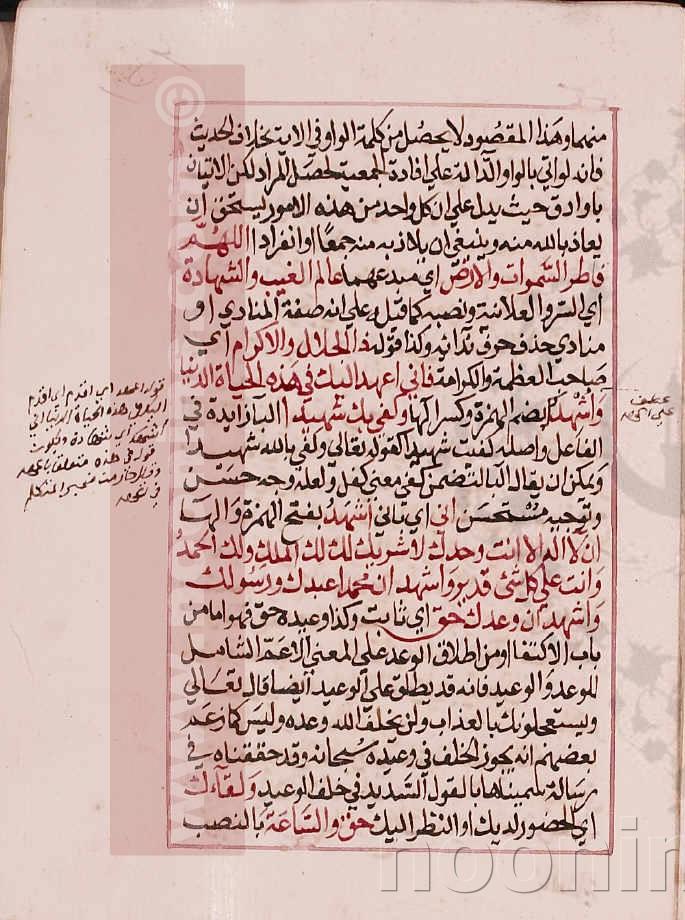 منهما وهذا المقصود لا يحصل من كلمة الواو في الاية بخلاف الحديث
فانه لو اتي بالواو الدالة علي افادة الجمعية لحصل المراد لكن الاتيان
باو ادق حيث يدل علي ان كل واحد من هذه الامور يستحق ان
يعاذ بالله منه وينبغي ان يلاذ به منه جمعا او انفرادا اللهم
فاطر السموات والارض اي مبدعهما عالم الغيب والشهادة
اي السر والعلانية ونصبه كما قبله علي انه صفة المنادي او
منادي حذف حرف ندائه وكذا قوله ذا الجلال والاكرام اي
صاحب العظمة والكرامة فاني اعهد اليك في هذه الحياة الدنيا
واشهدك بضم الهمزة وكسر الها وكفي بك شهيدا البا زايدة في
الفاعل واصله كفيت شهيدا كقوله تعالي وكفي بالله شهيدا
ويمكن ان يقال البا لتضمن كفي معني كفل ولعله وجه حسن
وتوجيه مستحسن اني اي باني اشهد بفتح الهمزة والها
ان لا اله الا انت وحدك لا شريك لك لك الملك ولك الحمد
وانت علي كل شئ قدير واشهد ان محمدا عبدك ورسولك
واشهد ان وعدك حق اي ثابت وكذا وعيده حق فهو اما من
باب الاكتفا او من اطلاق الوعد علي المعني الاعم الشامل
للموعد والوعيد فانه قد يطلق علي الوعيد ايضا قال تعالي
ويستعجلونك بالعذاب ولن يخلف الله وعده وليس كما زعم
بعضهم انه يجوز الخلف في وعيده سبحانه وقد حققناه في
رسالة سميناها بالقول السديد في خلف الوعيد ولقاءك
اي الحضور لديك او النظر اليك حق والساعة بالنصب
عطف
علي اعهد
قوله اعهد اي اقدم
اليك في هذه الحياة الدنيا
noonin